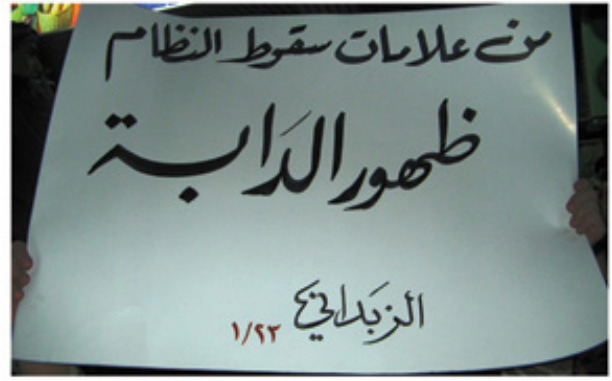 من علامات سقوط النظام
ظهور الدَابة
الزبَداني
١/٢٣